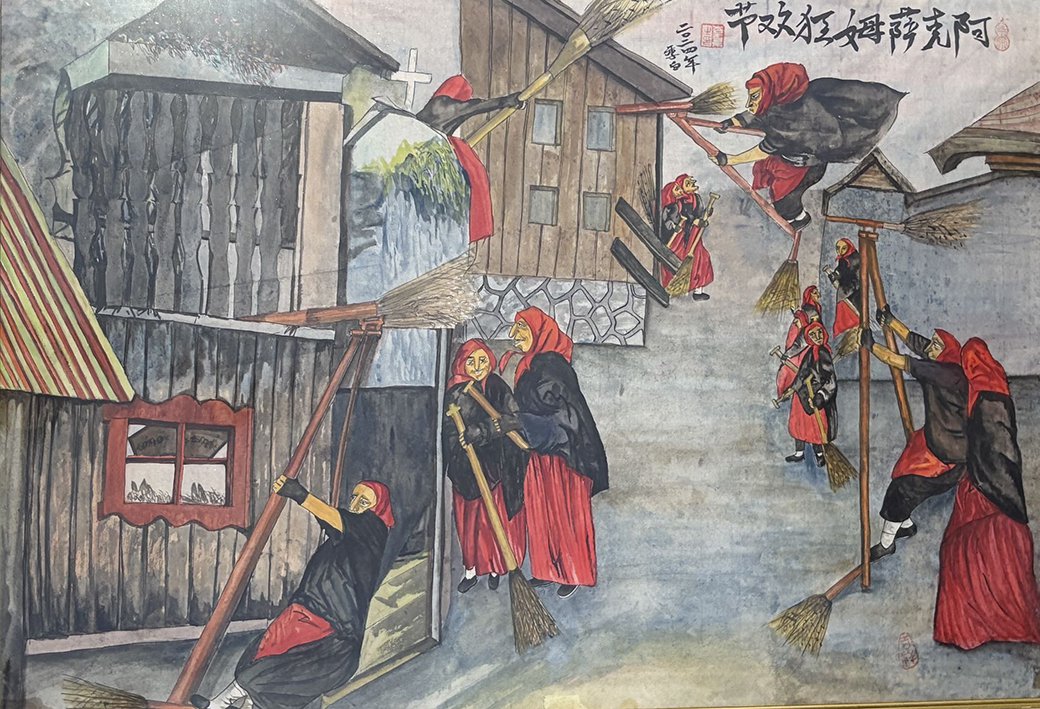 阿克萨姆狂欢节
二〇二四年